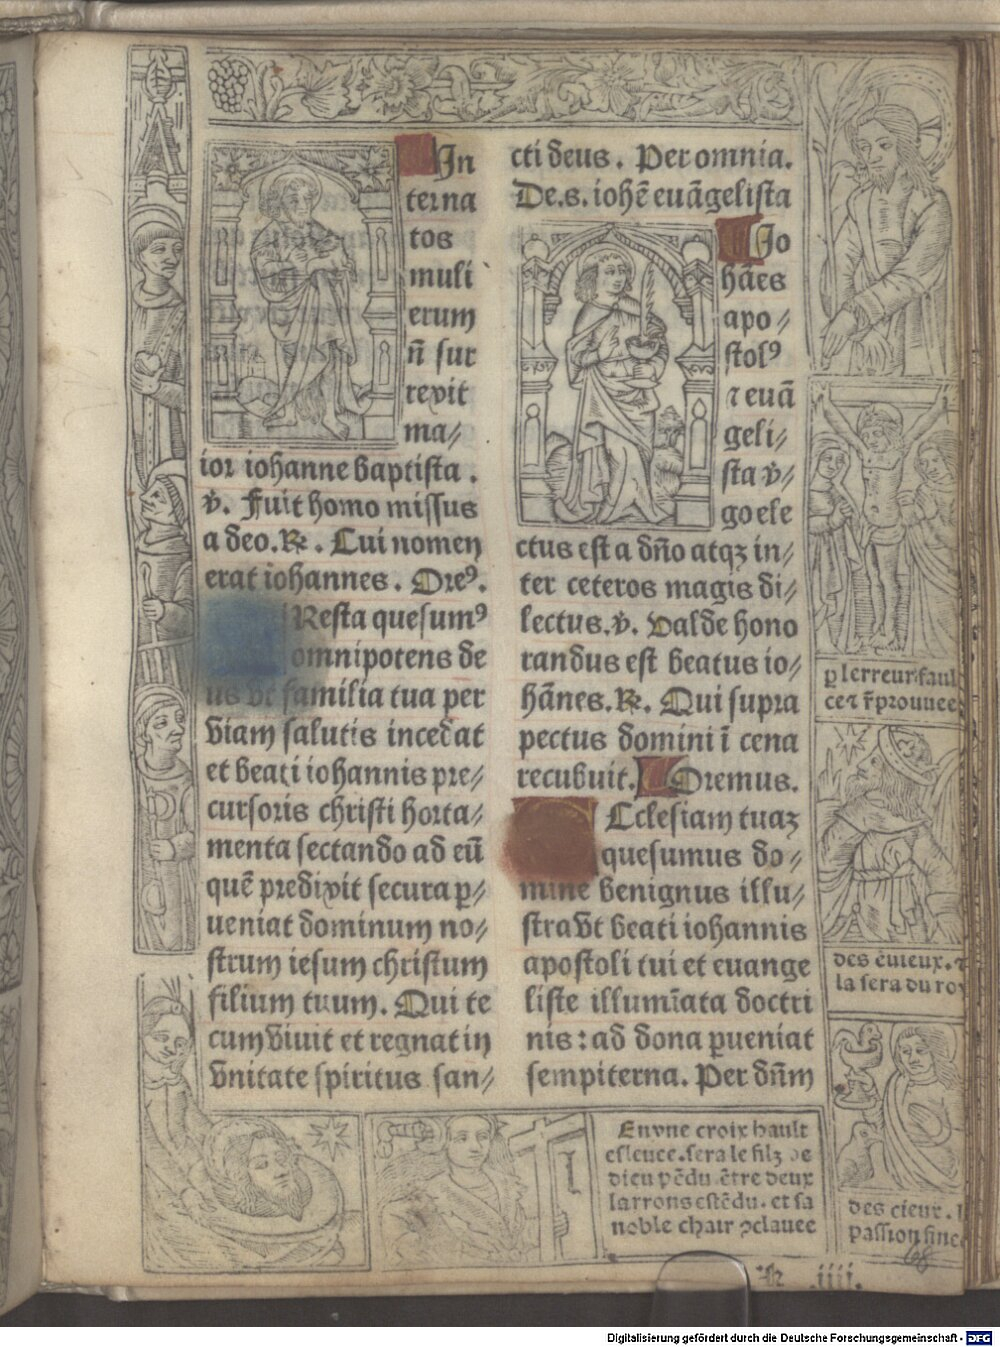 In
terna
tos
muli
erum
n̄ sur
rexit
ma⸗
ior iohanne baptista .
v̄. Fuit homo missus
a deo. ℟. Cui nomen
erat iohannes . Oreꝰ.
Resta quesumꝰ
omnipotens de
us vt familia tua per
viam salutis incedat
et beati iohannis pre⸗
cursoris christi horta⸗
menta sectando ad eū
quē predixit secura ꝑ⸗
ueniat dominum no⸗
strum iesum christum
filium tuum. Qui te
cum viuit et regnat in
vnitate spiritus san⸗
cti deus . Per omnia.
De.s. iohē euāgelista
Jo
hāes
apo⸗
stolꝰ
⁊ euā
geli⸗
sta v̄⸗
go ele
ctus est a dn̄o atqꝫ in⸗
ter ceteros magis di⸗
lectus. v̄. Valde hono
randus est beatus io⸗
hānes. ℟. Qui supra
pectus domini ī cena
recubuit. Oremus.
Cclesiam tuaꝫ
quesumus do⸗
mine benignus illu⸗
stra vt beati iohannis
apostoli tui et euange
liste illumīata doctri
nis : ad dona ꝑueniat
sempiterna. Per dn̄m
ꝑ lerreur faul
ce ⁊ r̄prouuee
des ēuieux. ⁊
la sera du roy
des cieux. l
passion sine
En vne croix hault
esleuee. sera le filz de
dieu pēdu ētre deux
larrons estēdu. et sa
noble chair ꝯclauee
68
h iiii.
Digitalisierung gefördert durch die Deutsche Forschungsgemeinschaft - DFG